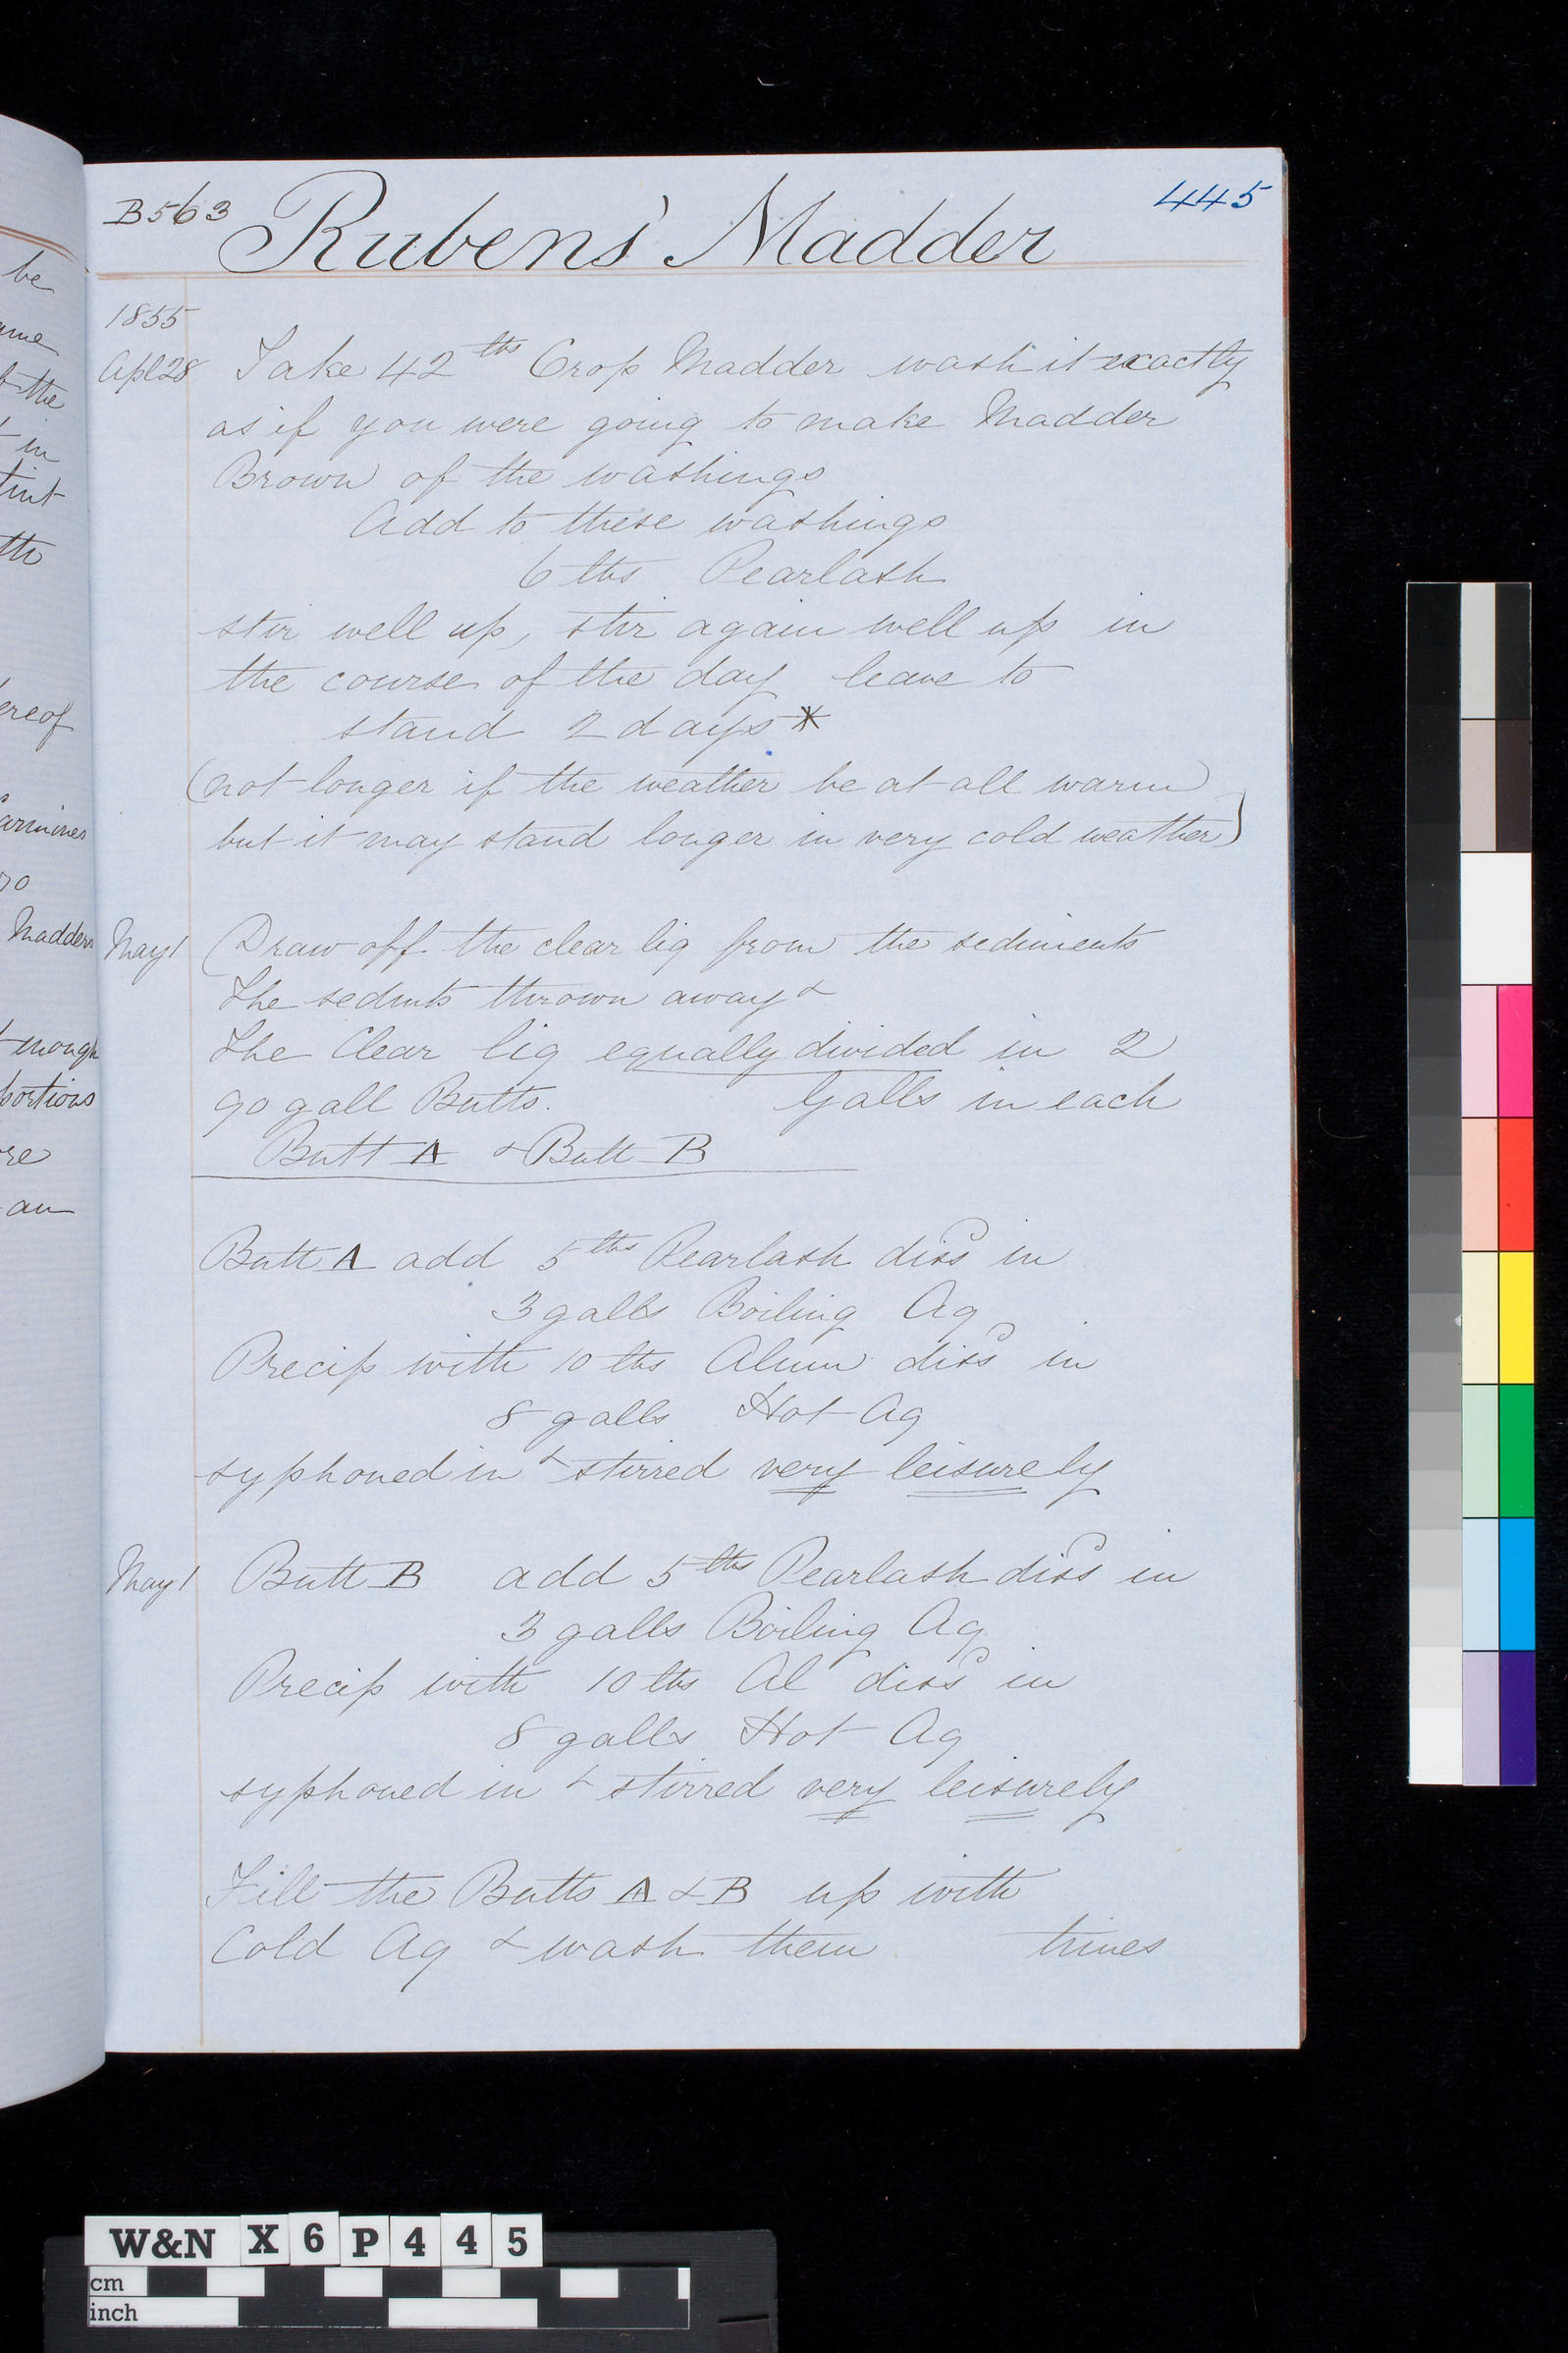 be
ame
of the
in
tint
the
ereof
armines
Madder
enough
portions
re
an
B563 Rubens' Madder 445
1855
Apl 28 Take 42 lbs Crop Madder wash it exactly
as if you were going to make Madder
Brown of the washings
Add to these washings
6 lbs Pearlash
stir well up, stir again well up in
the course of the day leave to
stand 2 days *
(not longer if the weather be at all warm
but it may stand longer in very cold weather)
May 1 Draw off the clear liq from the sediments
The sedmts thrown away &
The Clear liq equally divided in 2
90 gall Butts. Galls in each
Butt A & Butt B
Butt A add 5 lbs Pearlash diss in
3 galls Boiling Aq
Precip with 10 lbs Alum diss in
8 galls Hot Aq
syphoned in & stirred very leisurely
May 1 Butt B add 5 lbs Pearlash diss in
3 galls Boiling Aq
Precip with 10 lbs Al diss in
8 galls Hot Aq
syphoned in & stirred very leisurely
Fill the Butts A & B up with
Cold Aq & wash them times
W&N X6P445
cm
inch